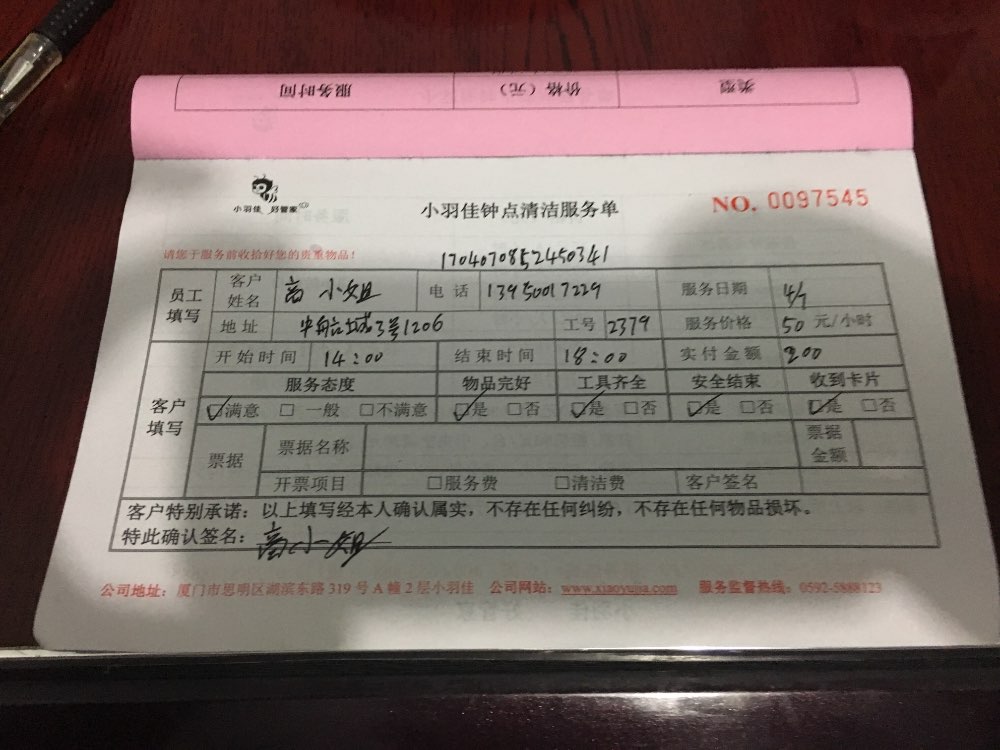 服务时间 价格（元） 类型
小羽佳 好管家
小羽佳钟点清洁服务单
NO. 0097545
请您于服务前收拾好您的贵重物品！
1704070852450341
员工填写 客户姓名 高小姐 电话 13950017229 服务日期 4/7
地址 3号1206 工号 2379 服务价格 50 元/小时
客户填写 开始时间 14:00 结束时间 18:00 实付金额 200
服务态度 物品完好 工具齐全 安全结束 收到卡片
☑满意 □一般 □不满意 ☑是 □否 ☑是 □否 ☑是 □否 ☑是 □否
票据 票据名称 票据金额
开票项目 □服务费 □清洁费 客户签名
客户特别承诺：以上填写经本人确认属实，不存在任何纠纷，不存在任何物品损坏。
特此确认签名：高小姐
公司地址：厦门市思明区湖滨东路 319 号 A 幢 2 层小羽佳 公司网站：www.xiaoyujia.com 服务监督热线：0592-5888123